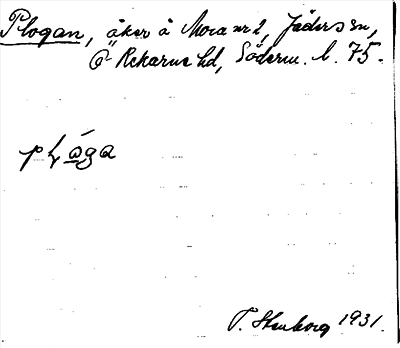 Plogan, åker å Mora nr 2, Jäders sn,
Ö Rekarne hd, Söderm. l. 75.
pļåga
T. Stenborg 1931.